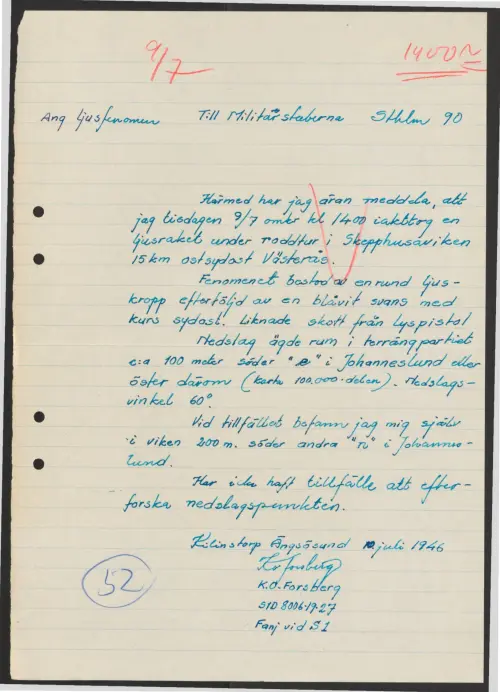 9/7
1400 N
Ang ljusfenomen Till Militärstaberna Sthlm 90
Härmed har jag äran meddela, att
jag tisdagen 9/7 omkr kl 1400 iakttog en
ljusraket under roddtur i Skepphusaviken
15 km ostsydost Västerås.
Fenomenet bestod av en rund ljus-
kropp efterföljd av en blåvit svans med
kurs sydost. Liknade skott från lyspistol
Nedslag ägde rum i terrängpartiet
c:a 100 meter söder "e" i Johanneslund eller
öster därom (karta 100.000-delen). Nedslags-
vinkel 60°.
Vid tillfället befann jag mig själv
i viken 200 m. söder andra "n" i Johannes-
lund.
Har icke haft tillfälle att efter-
forska nedslagspunkten.
Ängsösund 10 juli 1946
K.O. Forsberg
K.O. Forsberg
STD 8006-19-27
Fanj vid S 1
52